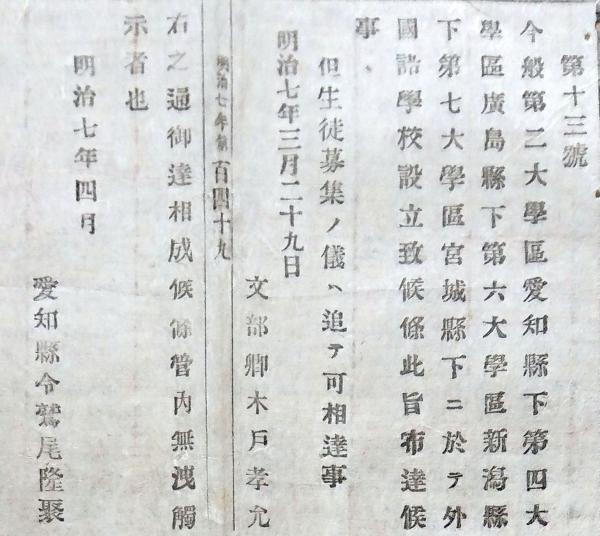 第十三號
今般第二大學區愛知縣下第四大
學區廣島縣下第六大學區新潟縣
下第七大學區宮城縣下ニ於テ外
國語學校設立致候條此旨布達候
事、
但生徒募集ノ儀ハ追テ可相達事
明治七年三月二十九日
文部卿木戸孝允
明治七年第百四十九
右之通御達相成候條管內無洩觸
示者也
明治七年四月
愛知縣令鷲尾隆聚